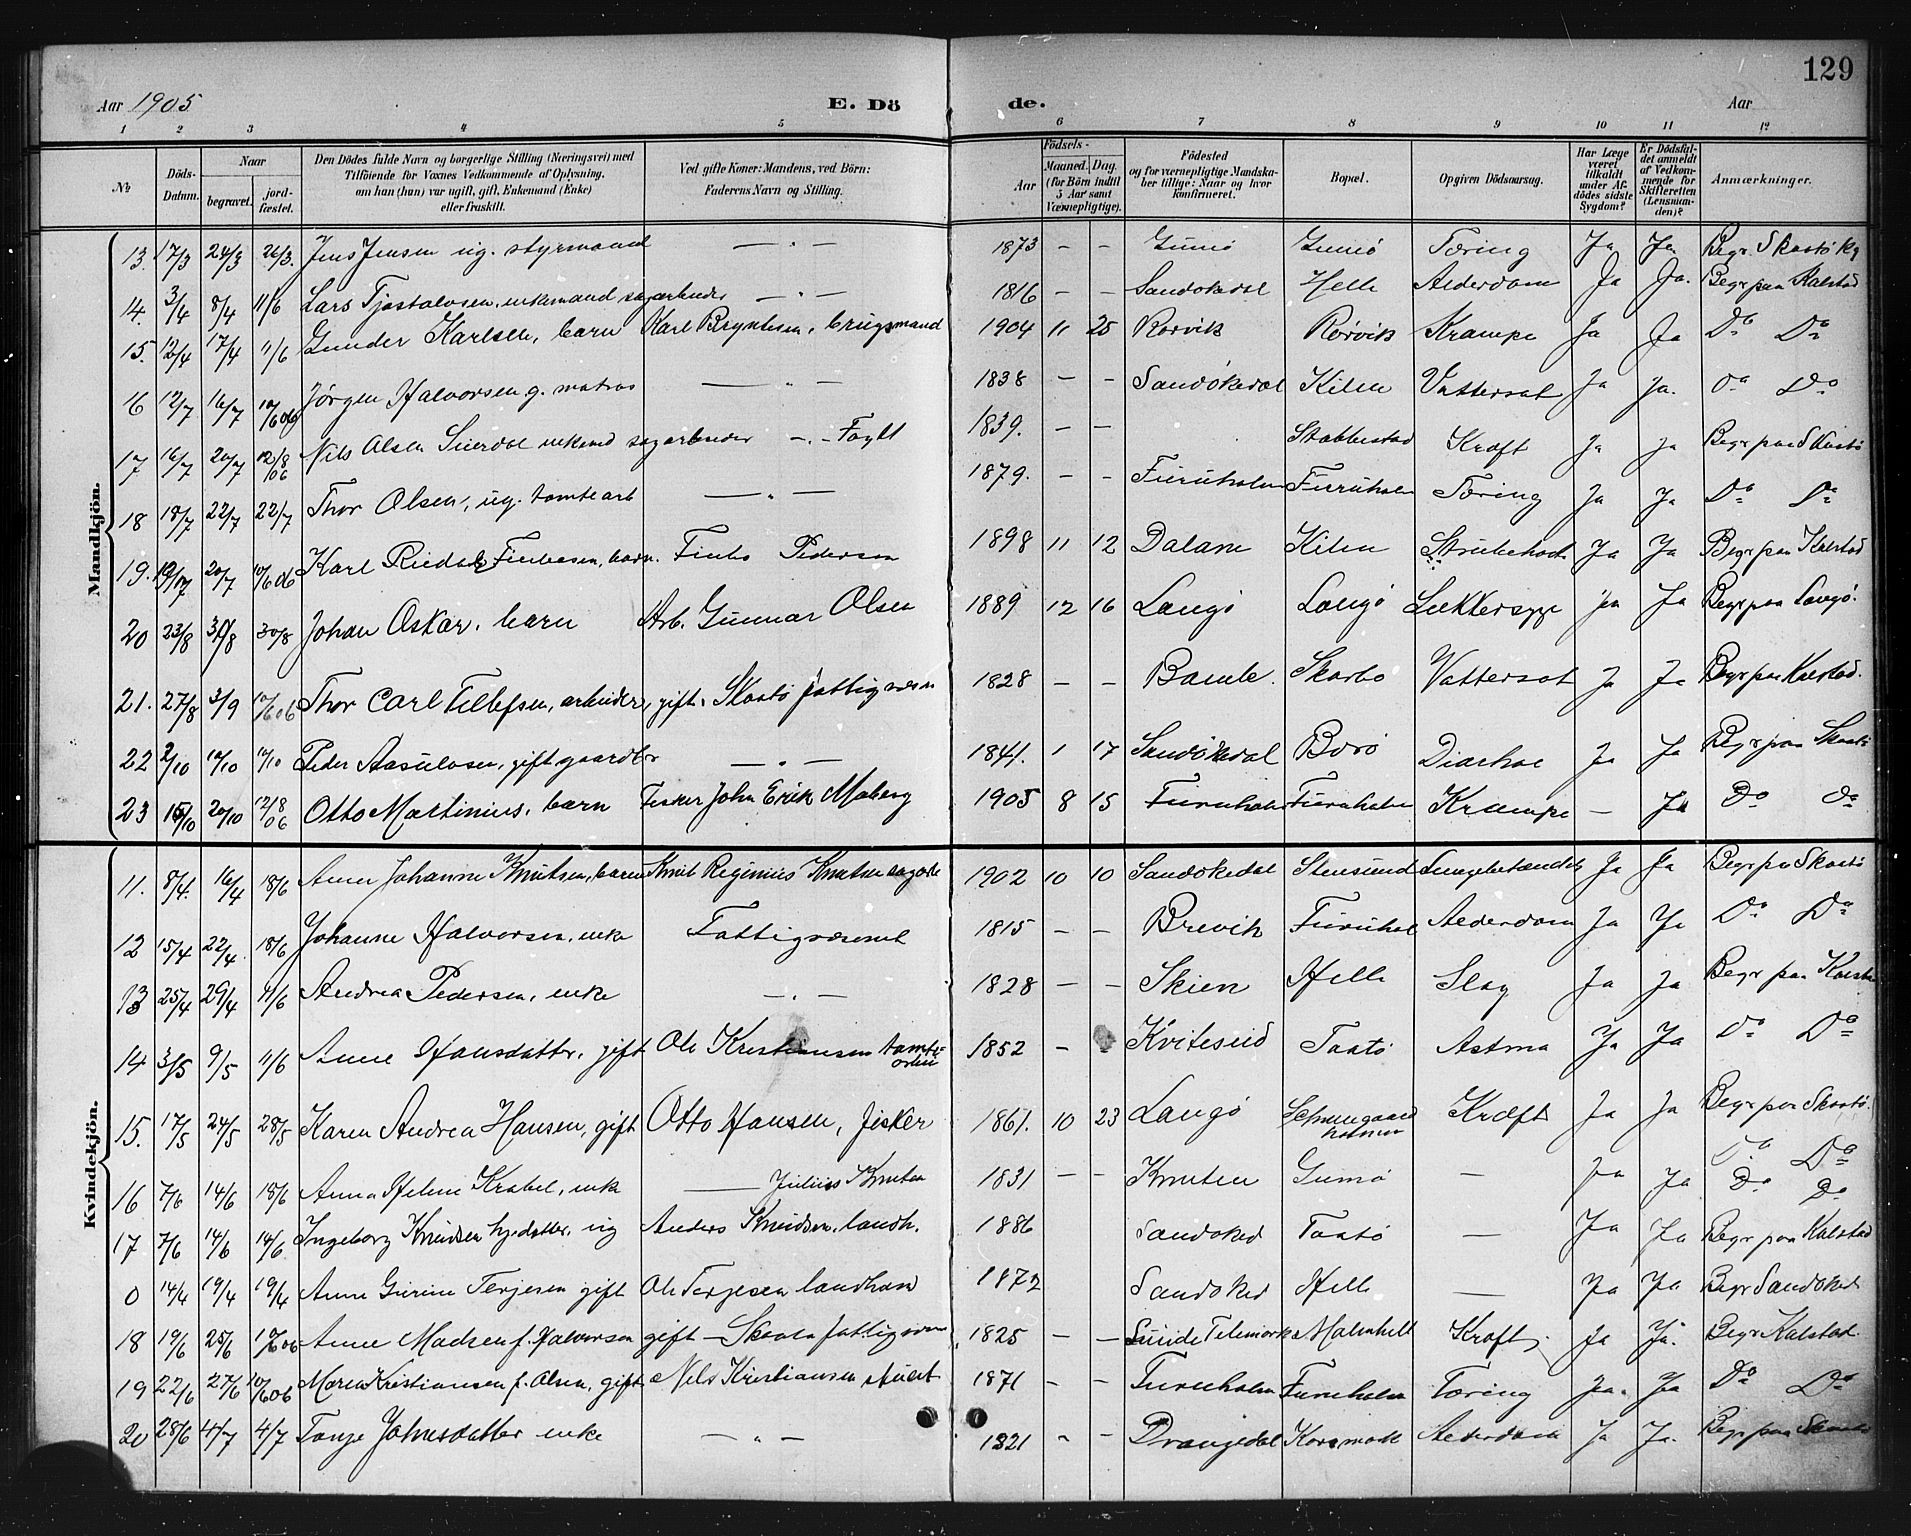 129
Aar 1905 E. Dö de. Aar
1 2 3 4 5 6 7 8 9 10 11 12
No. Döds-Datum. Naar begravet. jordfæstet. Den Dødes fulde Navn og borgerlige Stilling (Næringsvei) med Tilføiende for Voxnes Vedkommende af Oplysning, om han (hun) var ugift, gift, Enkemand (Enke) eller fraskilt. Ved gifte Koner: Mandens, ved Börn: Faderens Navn og Stilling. Födsels- Aar Maaned. Dag. (for Börn indtil 5 Aar samt Værnepligtige). Födested og for værnepligtige Mandskaber tillige: Naar og hvor konfirmeret. Bopæl. Opgiven Dödsaarsag. Har Læge været tilkaldt under Afdødes sidste Sygdom? Er Dödsfaldet anmeldt af Vedkommende for Skifteretten (Lensmanden)? Anmærkninger.
Mandkjön.
13. 17/3 24/3 26/3. Jens Jensen ug. styrmand — " — 1873 – – Gumö Gumö Tæring Ja Ja Begr. Skaatö kg
14. 3/4 8/4 11/6 Lars Tjostolvsen, enkemand sagarbeider — " — 1816 – – Sandökedal Helle Alderdom Ja Ja. Begr paa Kalstad
15. 12/4 17/4 11/6 Gunder Karlsen, barn Karl Bryntesen, brugsmand 1904 11 25 Rørvik Rørvik Krampe Ja Ja Do Do
16 12/7 16/7 10/6 06 Jørgen Halvorsen g. matros — " — 1838 – – Sandökedal Kilen Vattersot Ja Ja. Do Do
17 16/7 20/7 12/8 06 Nils Olsen enkemd sagarbeider – " – 1839. – – Stabbestad Kræft Ja Ja Begr paa Skaatö
18 18/7 22/7 22/7 Thor Olsen, ug. tomtearb — " — 1879. – – Furuholm Furuholm Tæring Ja Ja Do Do
19. 19/7 20/7 10/6 06 Karl barn. Pedersen 1898 11 12 Dalane Kilen Strubehost Ja Ja Begr paa Kalstad
20 23/8 30/8 30/8 Johan Oskar, barn Arb. Gunnar Olsen 1889 12 16 Langö Langö Sukkersyge Ja Ja Begr paa Langö.
21. 27/8 3/9 10/6 06 Thor Carl Tellefsen, arbeider, gift. Skaatö fattigvæsen 1828 – – Bamle. Skarbo Vattersot Ja Ja Begr paa Kalstad.
22 2/10 10/10 10/10 Peder Aasulvsen, gift gaardbr — " — 1841. 1 17 Sandökedal Borö Diarhoe Ja Ja Begr paa Skaatö
23 15/10 20/10 12/8 06 Otto Martinius, barn Fisker John Erik Moberg 1905 8 15 Furuholm Furuholm Krampe – Ja Do Do
Kvindekjön.
11. 8/4. 16/4 18/6 Anna Johanne Knutsen, barn Knut Reginius Knutsen 1902 10 10 Sandökedal Stensund Lungebetændels Ja Ja Begr paa Skaatö
12 15/4 22/4. 18/6 Johanne Halvorsen, enke Fattigvæsenet 1815 – – Brevik Furuhol Alderdom Ja Ja Do Do
13 25/4 29/4 11/6 Andrea Pedersen, enke – " – 1828 – – Skien Helle Slag Ja Ja Begr paa Kalstad
14 3/5 9/5 11/6 Anne Hansdatter, gift Ole Kristiansen 1852 – Kviteseid Taatö Astma Ja Ja Do Do
15. 17/5 24/5 28/5 Karen Andrea Hansen, gift Otto Hansen, fisker 1861. 10 23 Langö Kræft Ja Ja Begr paa Skaatö.
16 7/6 14/6 18/6 Anna Helene Krabel, enke — Julius Knutsen 1831 – – Knuten Gumö — Ja Ja Do Do
Do Do
17 7/6 14/6 14/6 Ingeborg Knudsen hj.datter, ug Anders Knudsen, landh. 1886 Sandøked Taatö — Ja Ja Begr paa Kalstad
0 14/4 19/4 19/4 Anne Gurine Terjesen gift Ole Terjesen landhan 1872 Sandøked Helle — Ja Ja Begr Sandøked
18 19/6 25/6 10/6 06 Anne Madsen f. Halvorsen gift – Skaatö fattigvæsen 1825 – – Telemark Malmhell Kræft. Ja Ja. Begr Kalstad.
19 22/6 27/6 10/6 06 Maren Kristiansen f. Olsen, gift Nils Kristiansen stuert 1871 – – Furuholm Furuholm Tæring Ja. Ja Do Do
20 28/6 4/7 4/7 Tonje Johnsdatter enke — " — 1821 – – Drangedal Korsmoth Alderdom Ja Ja. Begr paa Skaatö